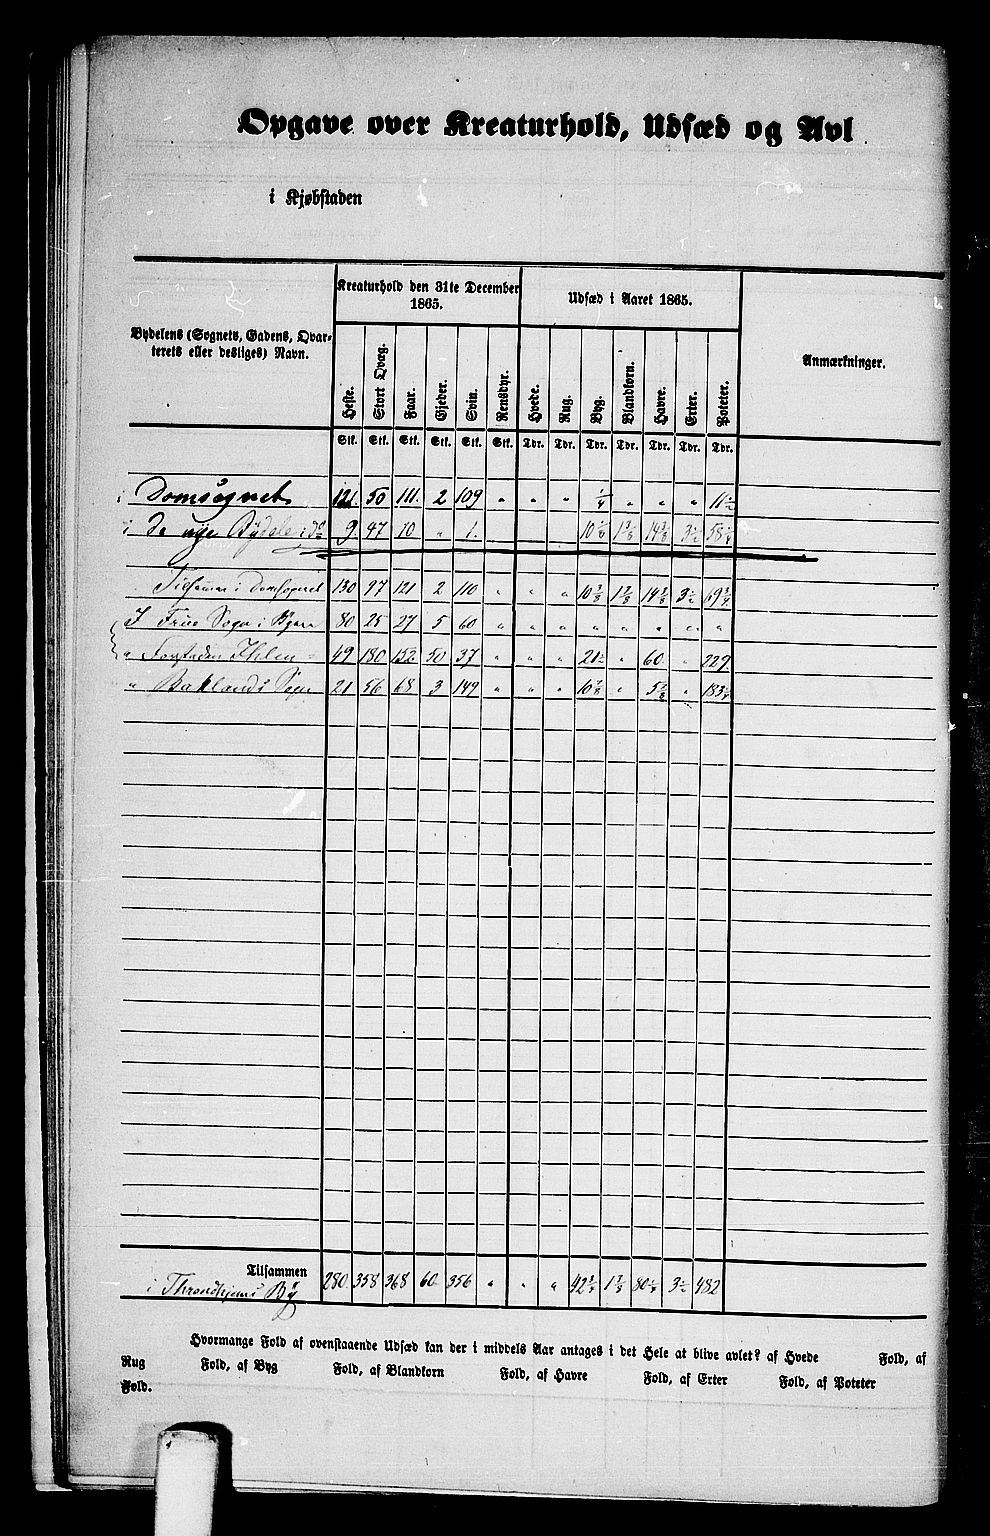 Opgave over Kreaturhold, Udsæd og Avl
i Kjøbstaden
Bydelens (Sognets, Gadens, Qvarterets eller desliges) Navn.
Kreaturhold den 31te December 1865.
Udsæd i Aaret 1865.
Anmærkninger.
Heste. Stort Qvæg. Faar. Gjeder. Svin. Rensdyr. Hvede. Rug. Byg. Blandkorn. Havre. Erter. Poteter.
Stk. Stk. Stk. Stk. Stk. Stk. Tdr. Tdr. Tdr. Tdr. Tdr. Tdr. Tdr.
i Domsognet 121. 50 111. 2 109 " " " 1/4 " " " 11 1/2
i de nye Bydele i do 9. 47 10 " 1. 10 1/8 1 3/8 14 3/8 3 1/2 58 1/4
Tilsammen i Domsognet 130 97 121 2 110 " " " 10 3/8 1 3/8 14 3/8 3 1/2 69 3/4
I Frue Sogn i Byen 80 25 27 5 60 " " " " " " " "
" Forstaden Ihlen 49 180 152 50 37 " " " 21 1/2 " 60 " 229
" Baklands Sogn 21 56 68 3 149 " " " 10 3/8 " 5 7/8 " 183 1/4
Tilsammen
i Throndhjems By 280 358 368 60 356 " " " 42 1/4 1 3/8 80 1/4 3 1/2 482
Hvormange Fold af ovenstaaende Udsæd kan der i middels Aar antages i det Hele at blive avlet? af Hvede Fold, af
Rug Fold, af Byg Fold, af Blandkorn Fold, af Havre Fold, af Erter Fold, af Poteter
Fold.